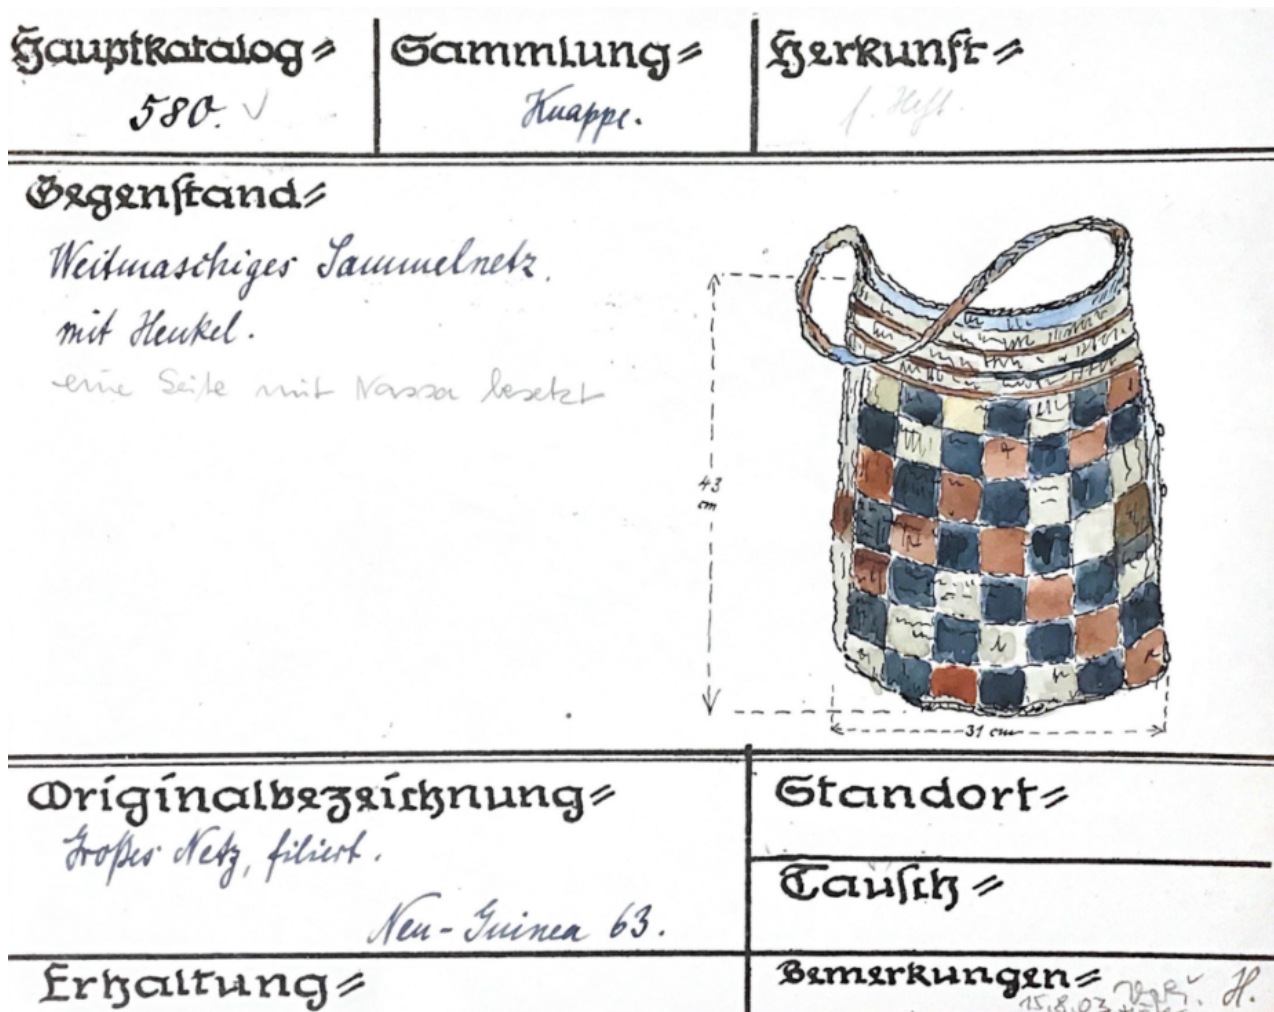 Hauptkatalog=
580. ✓
Sammlung=
Knappe.
Herkunft=
f. Heft.
Gegenstand=
Weitmaschiges Sammelnetz
mit Henkel.
eine Seite mit Nassa besetzt
43
cm
31 cm
Originalbezeichnung=
Großes Netz, filiert.
Neu-Guinea 63.
Standort=
Tausch=
Erhaltung=
Bemerkungen=
H.
15.8.03